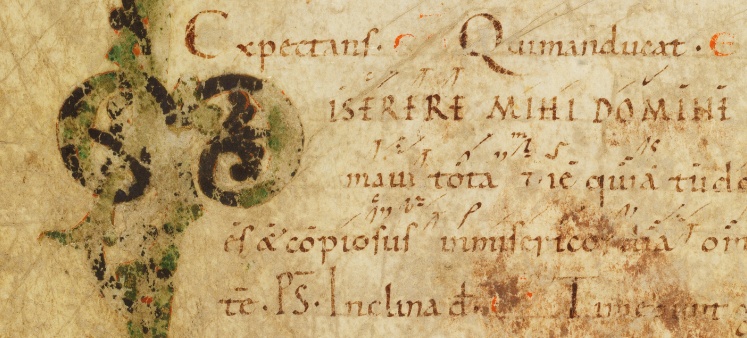 Expectans. Quimanducat.
MISERERE MIHI DOMINE
mavi tota die quia tu do
es & copiosus inmisericordia om
te. PS. Inclina d. Timebunt g